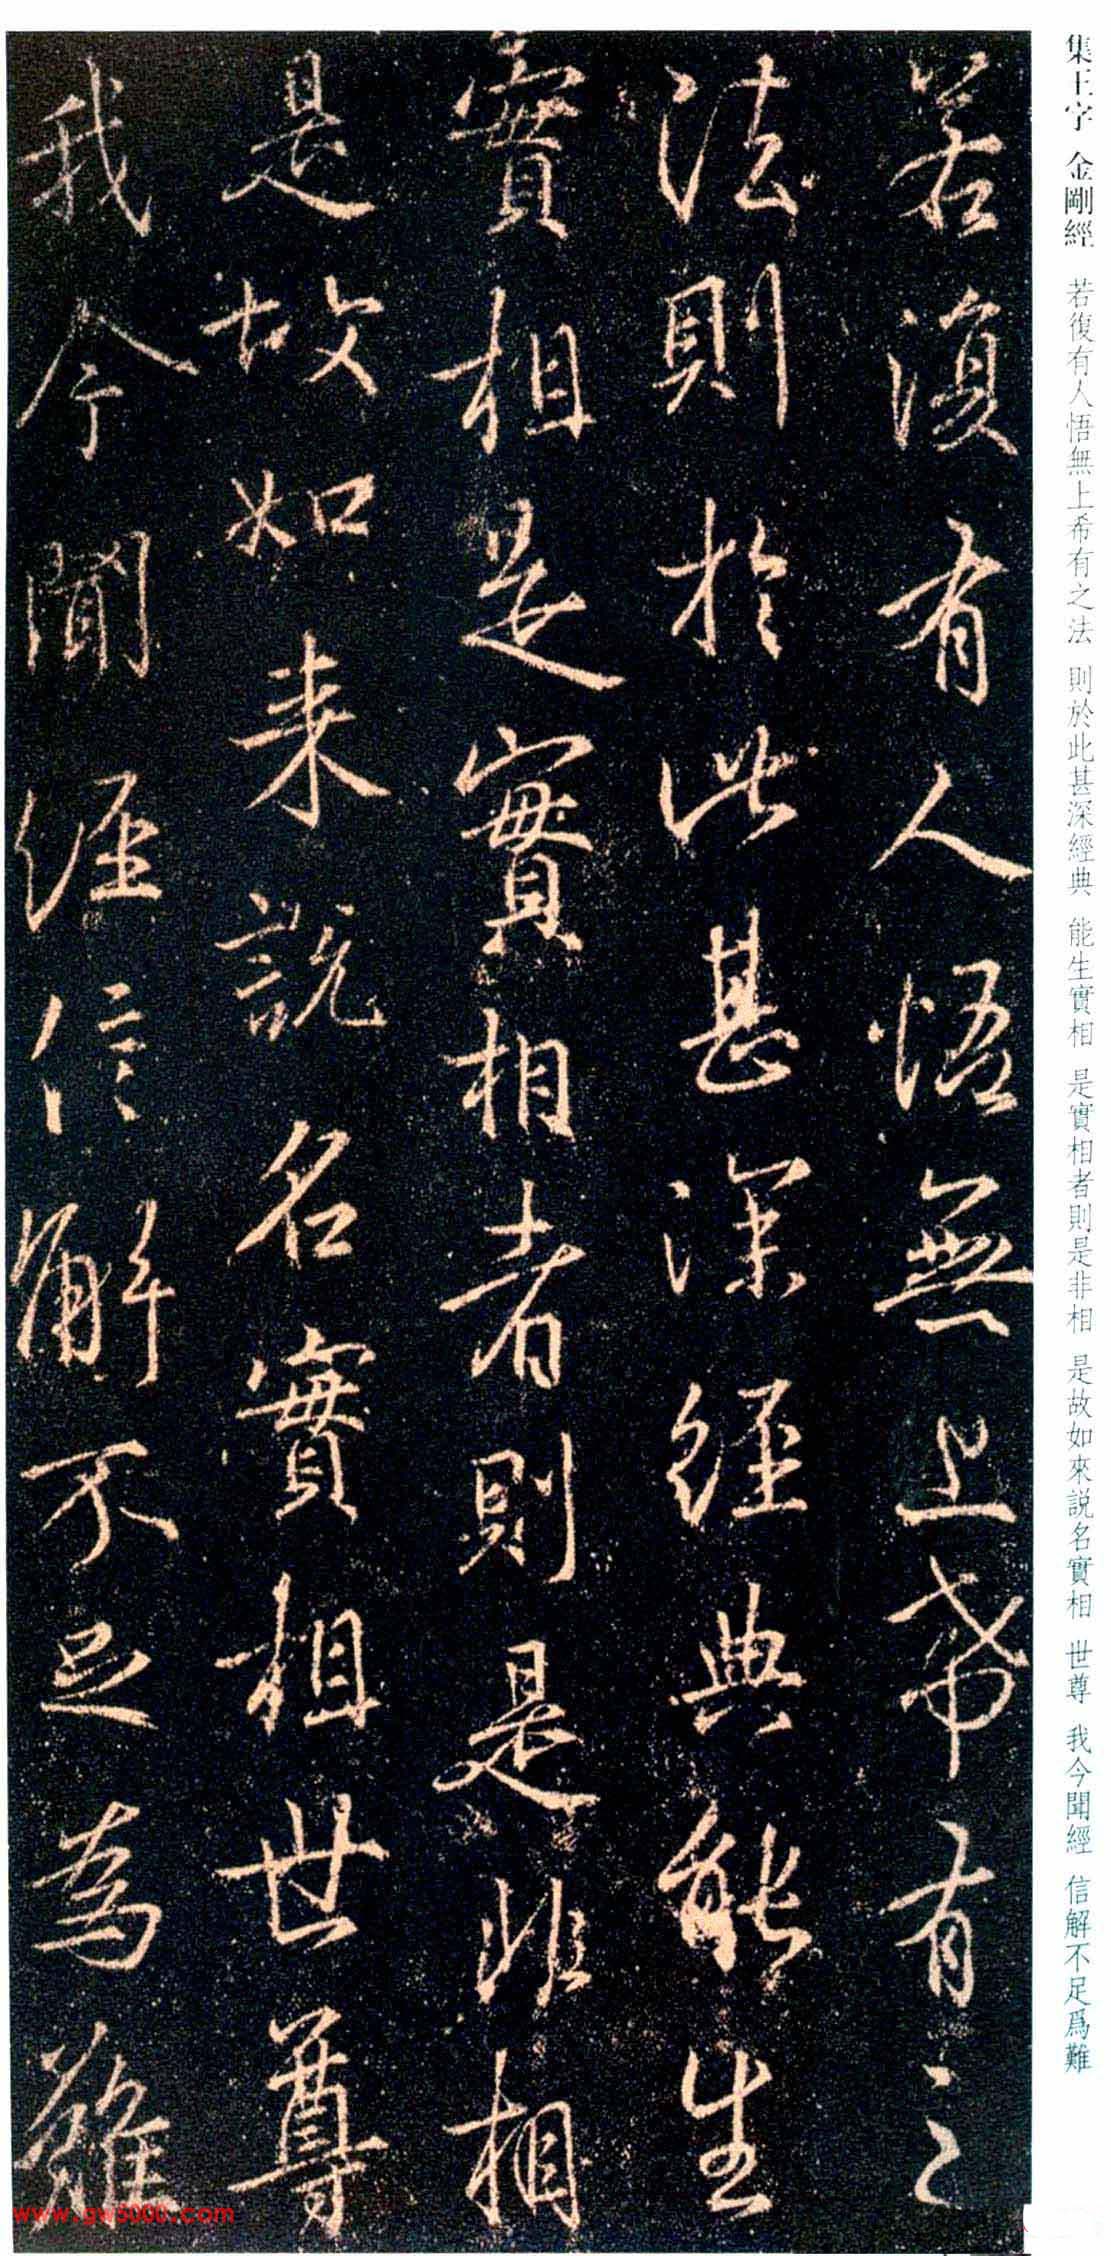 集王字 金剛經 若復有人悟無上希有之法 則於此甚深經典 能生實相 是實相者則是非相 是故如來説名實相 世尊 我今聞經 信解不足爲難
若復有人悟無上希有之
法則於此甚深經典能生
實相是實相者則是非相
是故如来說名實相世尊
我今聞經信解不足為難
www.gw5000.com